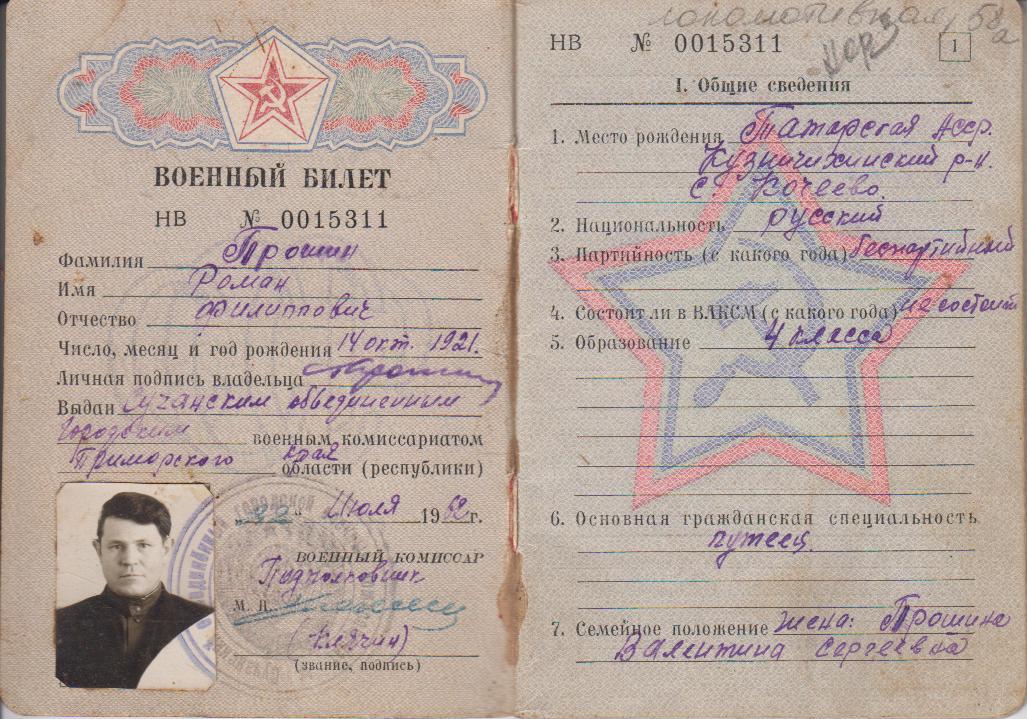 ВОЕННЫЙ БИЛЕТ
НВ № 0015311
Фамилия Прошин
Имя Роман
Отчество Филиппович
Число, месяц и год рождения 14 окт. 1921.
Личная подпись владельца
Выдан Сучанским объединенным
Городским военным комиссариатом
Приморского края области (республики)
"22" Июля 1962 г.
ВОЕННЫЙ КОМИССАР
Подполковник
М. П.
(Клячин)
(звание, подпись)
локомотивная 58а
НВ № 0015311
1
I. Общие сведения
1. Место рождения Татарская АССР.
Кузничихинский р-н.
с. Кочеево.
2. Национальность русский
3. Партийность (с какого года) беспартийный
4. Состоит ли в ВЛКСМ (с какого года) не состоит
5. Образование 4 класса
6. Основная гражданская специальность
путеец.
7. Семейное положение жена: Прошина
Валентина Сергеевна